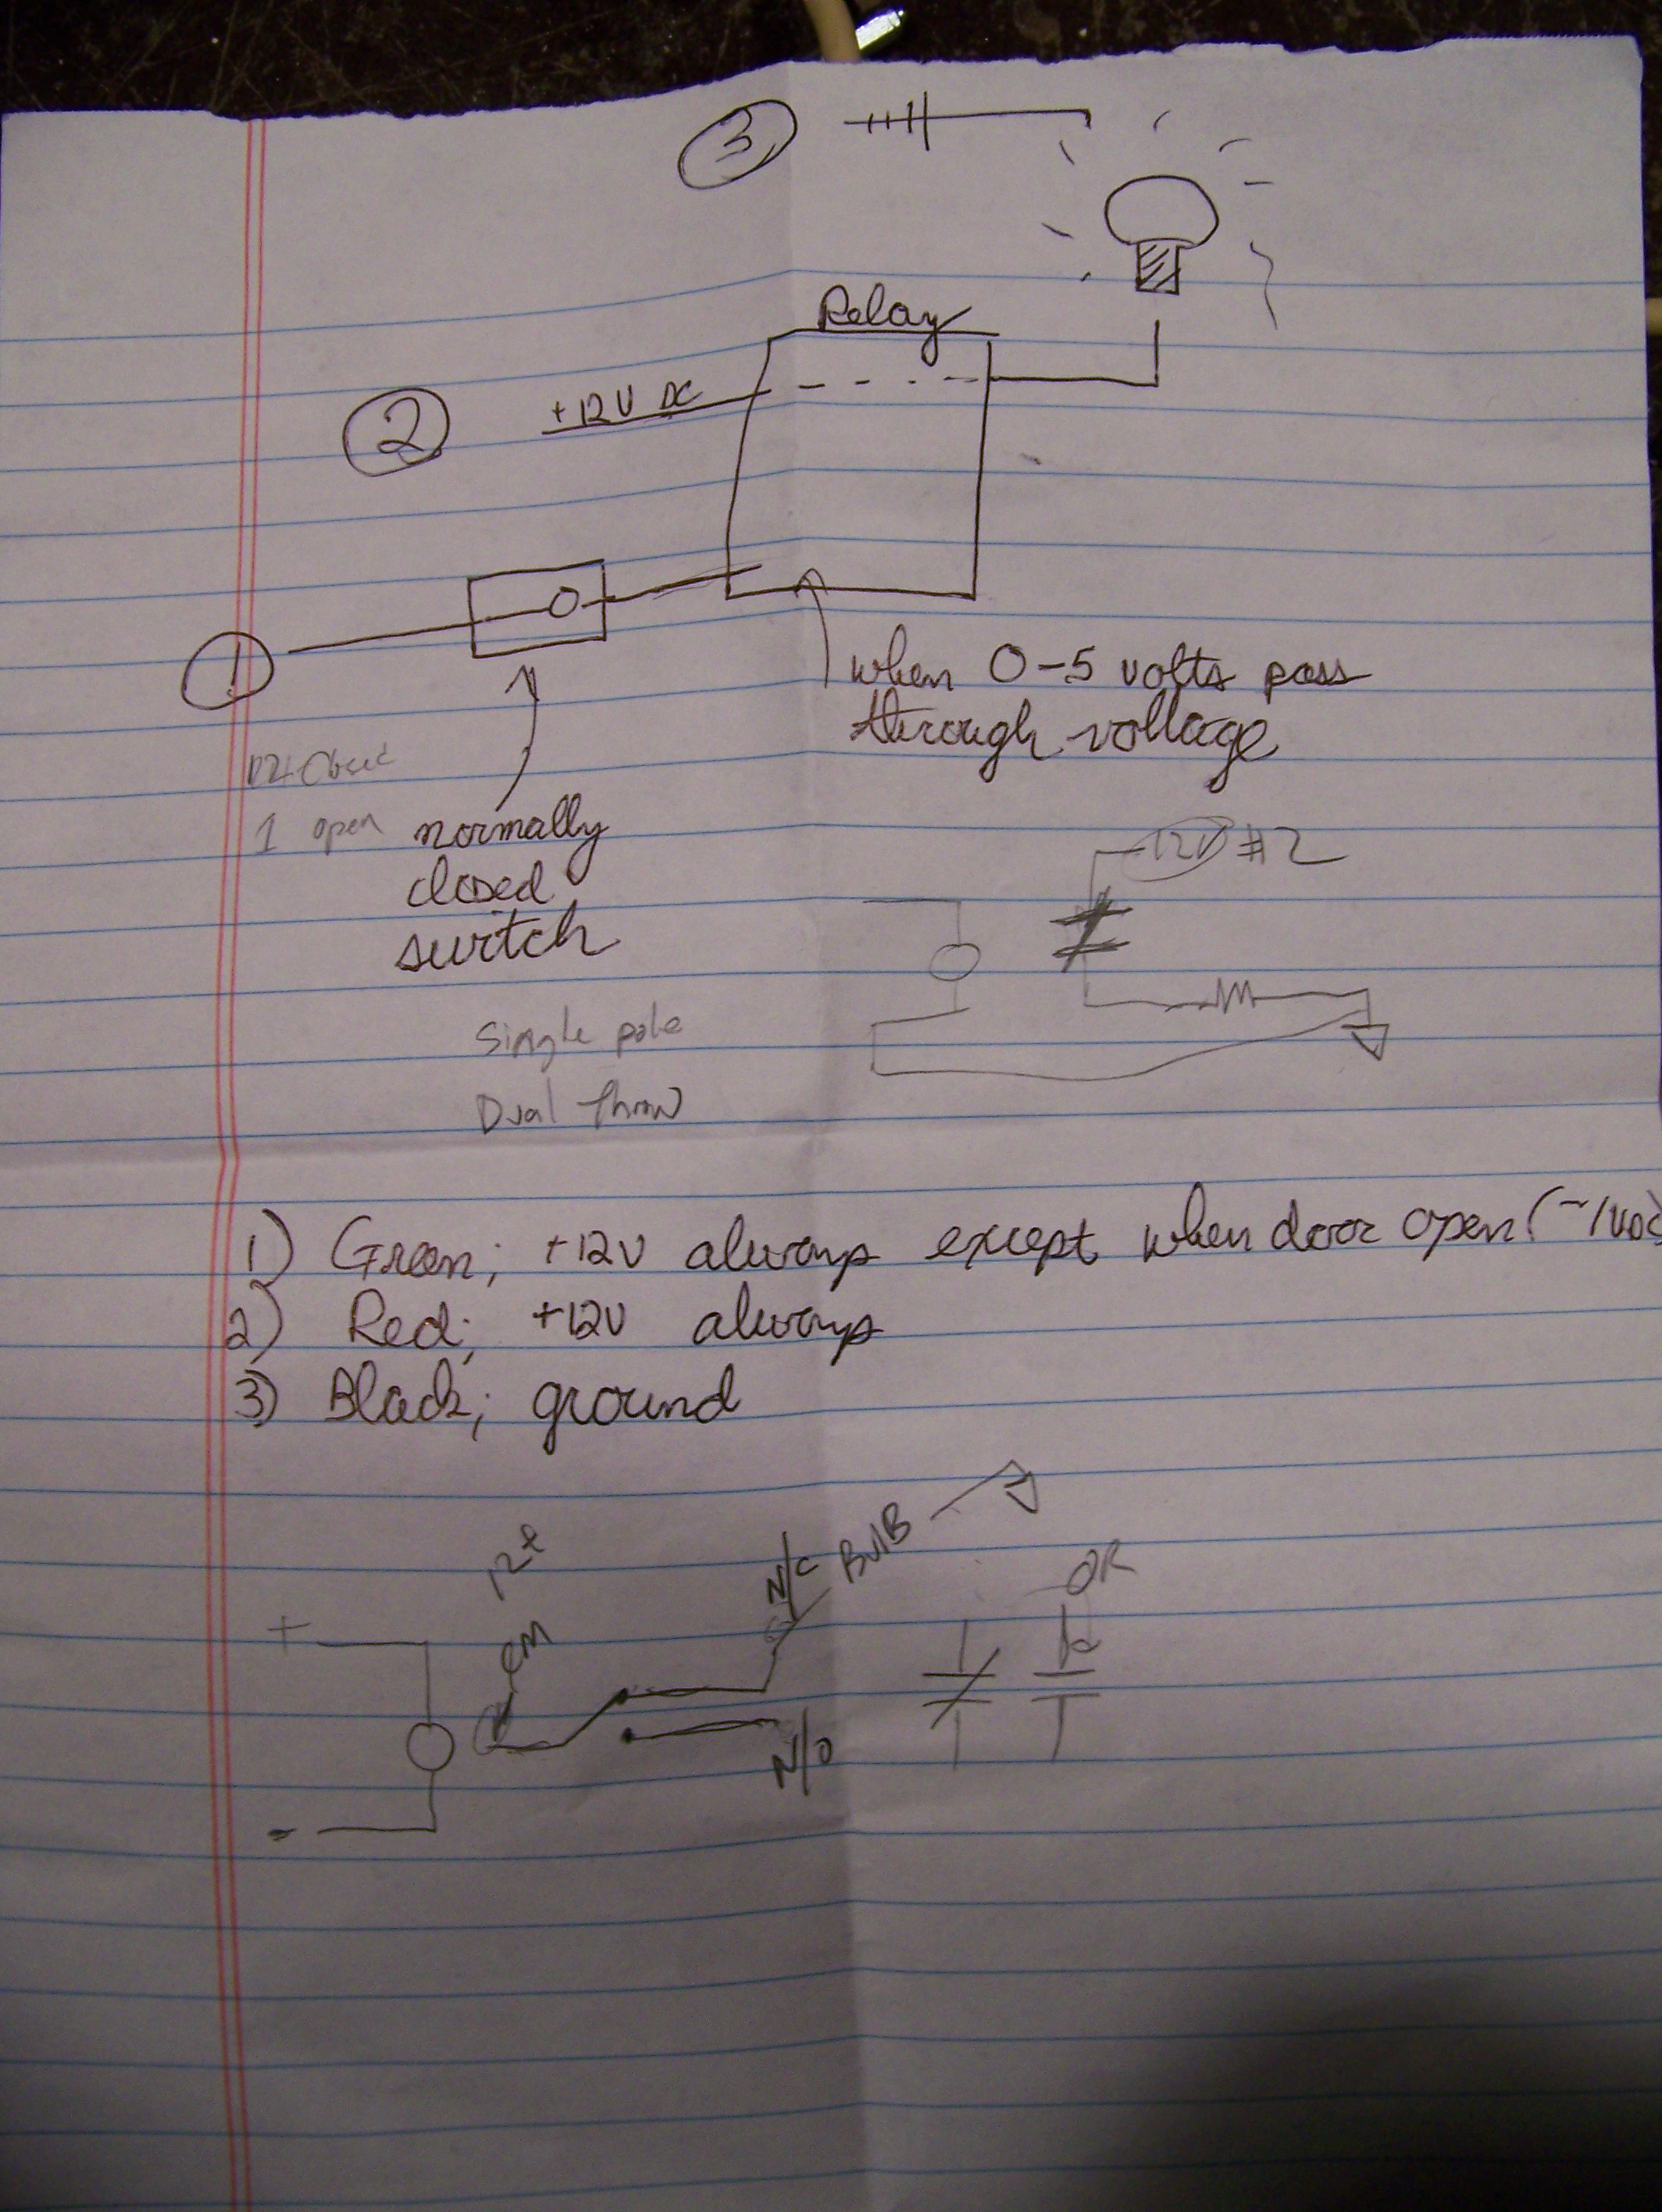 3
Relay
2
+12V DC
1
when 0-5 volts pass
through voltage
1 open
normally
closed
switch
12V #2
Single pole
Dual Throw
1) Green; +12V always except when door open (~1VDC
2) Red; +12V always
3) Black; ground
+
N/C
BulB
OR
N/O
-